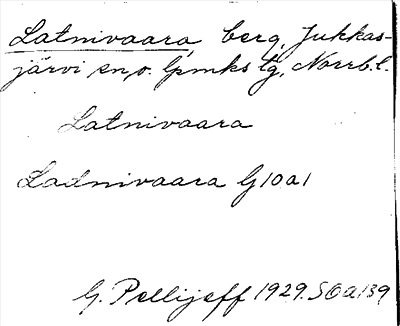 Latnivaara, berg, Jukkas-
järvi sn, o. lpmks tg, Norrb. l.
Latnivaara
Ladnivaara G10a1
G. Pellijeff 1929. SOA139